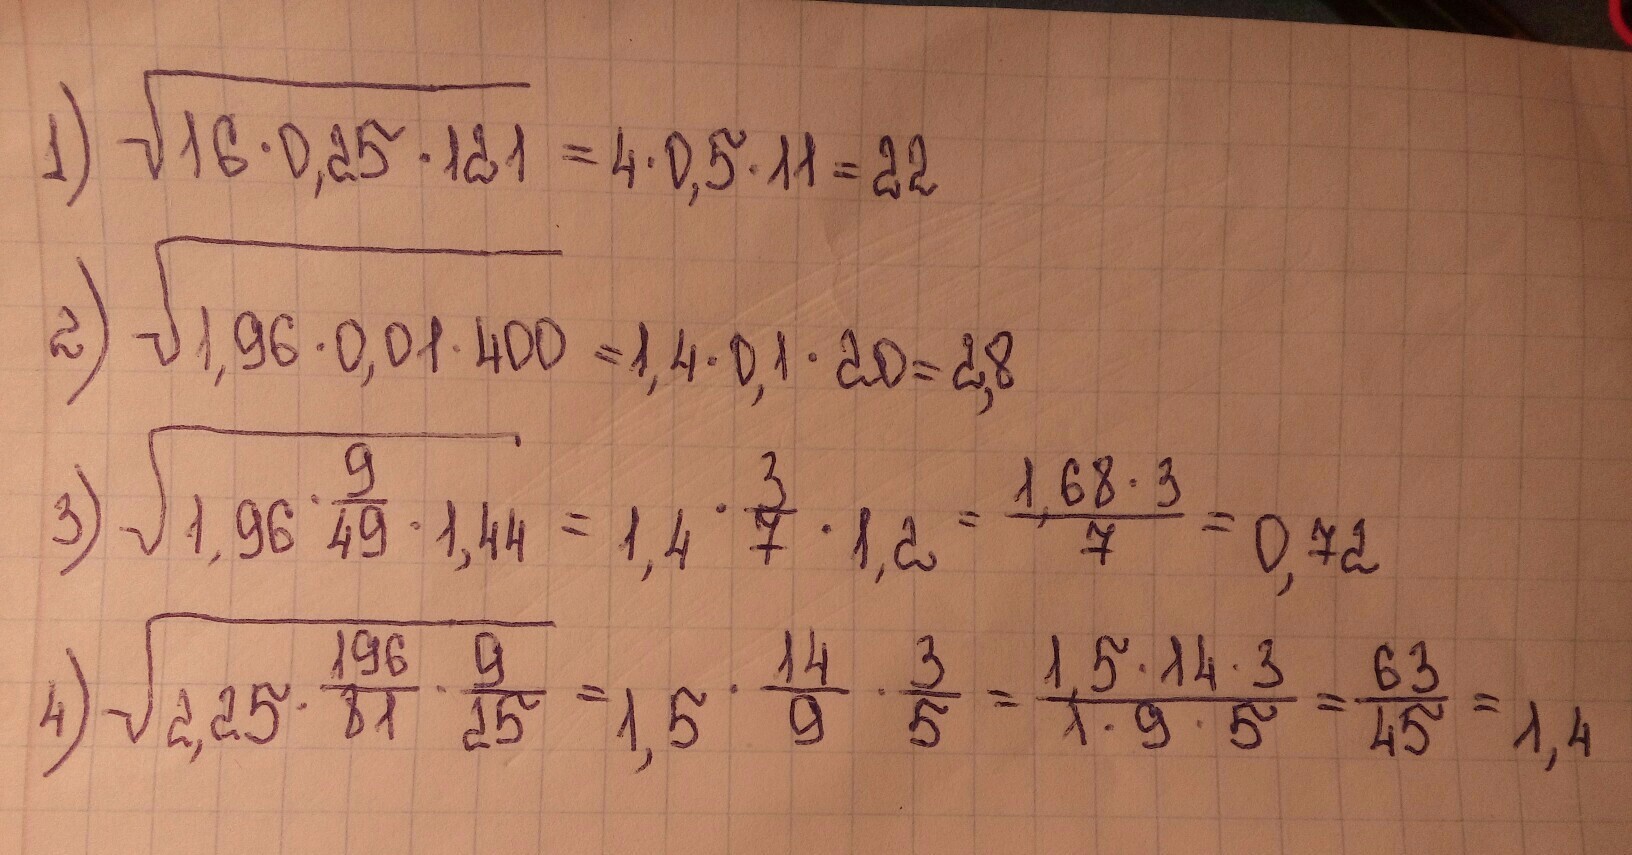 1) √16·0,25·121 = 4·0,5·11 = 22
2) √1,96·0,01·400 = 1,4·0,1·20 = 2,8
3) √1,96·9/49·1,44 = 1,4·3/7·1,2 = 1,68·3/7 = 0,72
4) √2,25·196/81·9/25 = 1,5·14/9·3/5 = 1,5·14·3/1·9·5 = 63/45 = 1,4